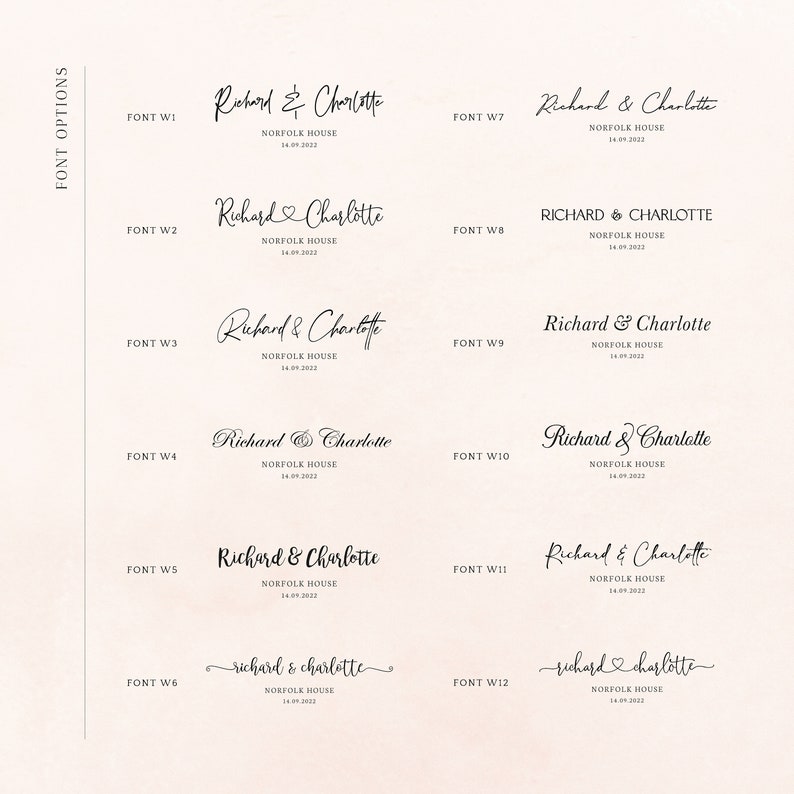 FONT OPTIONS
FONT W1
Richard & Charlotte
NORFOLK HOUSE
14.09.2022
FONT W2
Richard ♡ Charlotte
NORFOLK HOUSE
14.09.2022
FONT W3
Richard & Charlotte
NORFOLK HOUSE
14.09.2022
FONT W4
Richard & Charlotte
NORFOLK HOUSE
14.09.2022
FONT W5
Richard & Charlotte
NORFOLK HOUSE
14.09.2022
FONT W6
richard & charlotte
NORFOLK HOUSE
14.09.2022
FONT W7
Richard & Charlotte
NORFOLK HOUSE
14.09.2022
FONT W8
RICHARD & CHARLOTTE
NORFOLK HOUSE
14.09.2022
FONT W9
Richard & Charlotte
NORFOLK HOUSE
14.09.2022
FONT W10
Richard & Charlotte
NORFOLK HOUSE
14.09.2022
FONT W11
Richard & Charlotte
NORFOLK HOUSE
14.09.2022
FONT W12
richard ♡ charlotte
NORFOLK HOUSE
14.09.2022